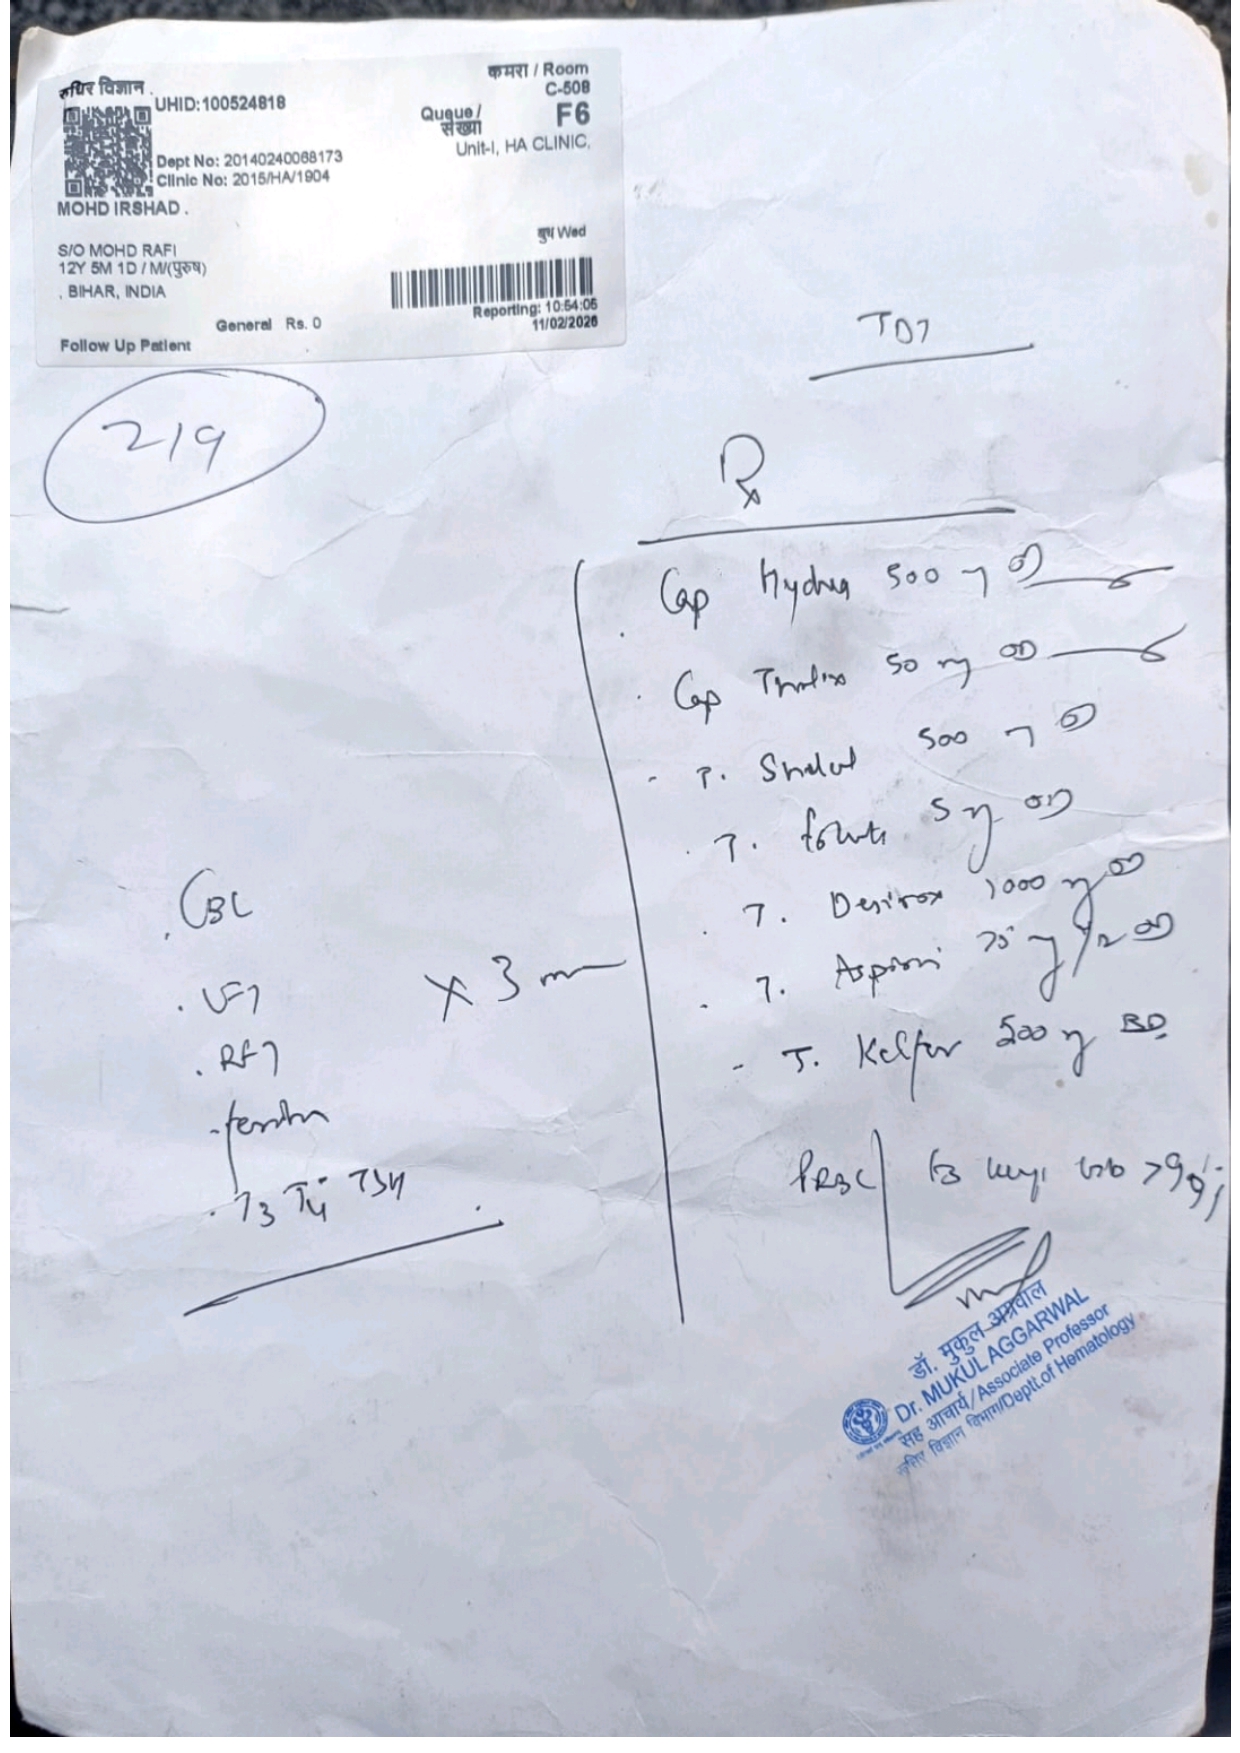 रुधिर विज्ञान .
UHID:100524818
Dept No: 20140240068173
Clinic No: 2015/HA/1904
MOHD IRSHAD .
S/O MOHD RAFI
12Y 5M 1D / M/(पुरुष)
, BIHAR, INDIA
General Rs. 0
Follow Up Patient
कमरा / Room
C-508
Queue / संख्या
F6
Unit-I, HA CLINIC,
बुध Wed
Reporting: 10:54:05
11/02/2026
219
TDT
Rx
Cap Hydrea 500 mg OD
Cap 50 mg OD
T. Shelcal 500 mg OD
T. folate 5 mg OD
T. Desirox 1000 mg OD
T. Aspirin 75 mg 1/2 OD
T. Kelfer 500 mg BD
. CBC
. LFT
. RFT
. ferritin
. T3 T4 TSH
X 3 m
PRBC to keep Hb >9
डॉ. मुकुल अग्रवाल
Dr. MUKUL AGGARWAL
सह आचार्य/Associate Professor
रुधिर विज्ञान विभाग/Deptt.of Hematology